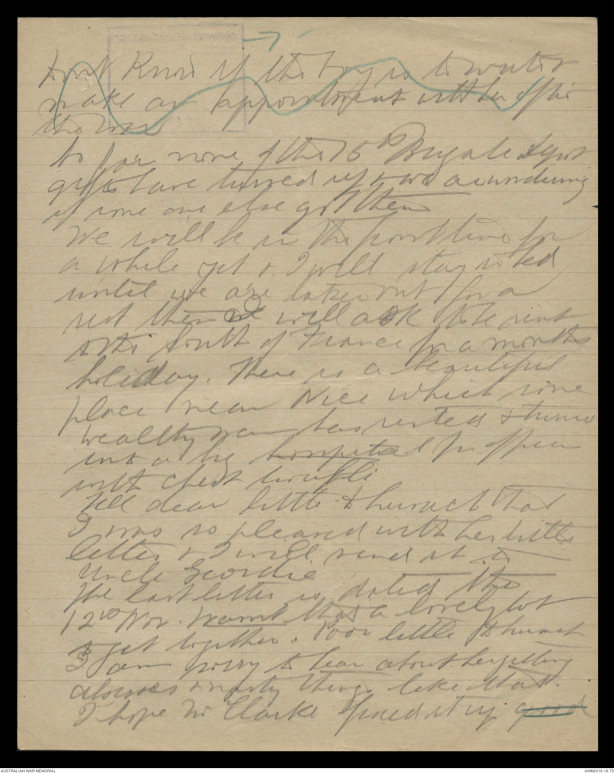 Don't know if the boy is to write
make an appointment with an officer
the
So far none of the 15th Brigade & your
gifts have turned up & we are wondering
if some one else got them
We will be in the front line for
a while yet & I will stay
until we are taken out for a
rest then I will ask to be sent
to the South of France for a months
holiday. There is a beautiful
place near Nice which some
wealthy man has rented & turned
into a big hospital for officers
with chest troubles
Tell dear little that
I was so pleased with her little
letter & I will send it to
Uncle Geordie
The last letter is dated the
12th Nov. wasnt that a lovely lot
to get together. Poor little
I am sorry to hear about her getting
abscesses & nasty things like that.
I hope Mr Clarke